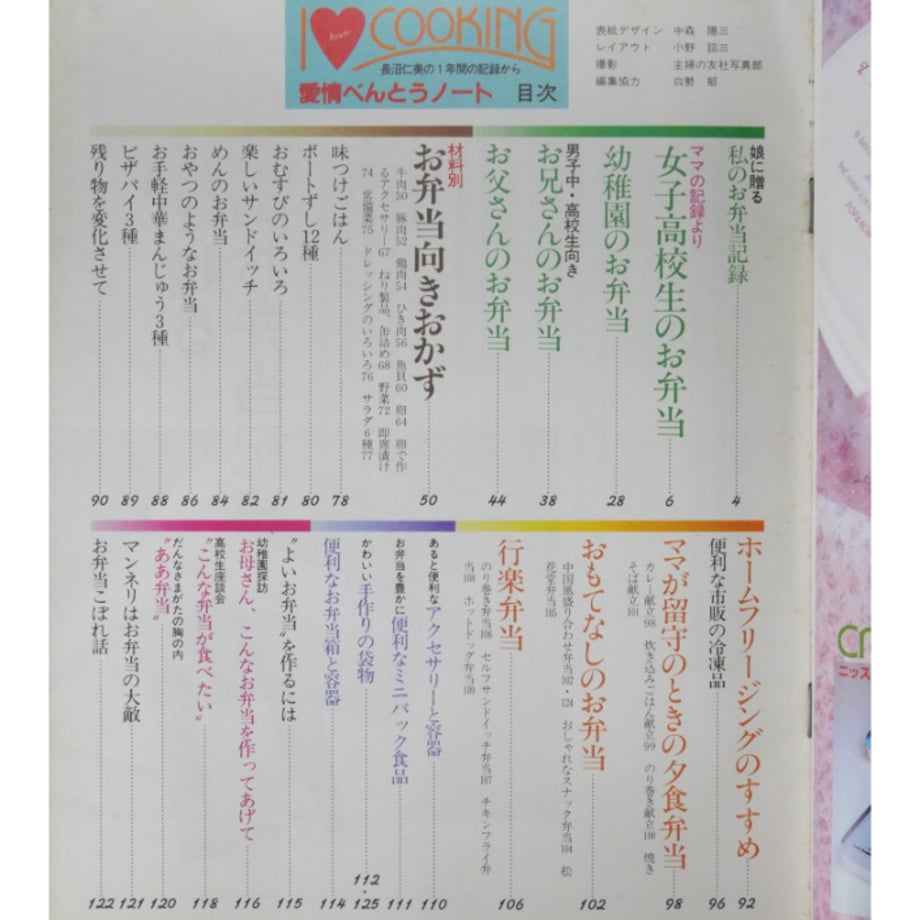 I love COOKING
長沼仁美の1年間の記録から
愛情べんとうノート 目次
表紙デザイン 中森 陽三
レイアウト 小野 詔三
撮影 主婦の友社写真部
編集協力 白勢 郁
娘に贈る
私のお弁当記録 4
ママの記録より
女子高校生のお弁当 6
幼稚園のお弁当 28
男子中・高校生向き
お兄さんのお弁当 38
お父さんのお弁当 44
材料別
お弁当向きおかず 50
牛肉50 豚肉52 鶏肉54 ひき肉56 魚貝60 卵64 卵で作
るアクセサリー67 ねり製品、缶詰め68 野菜72 即席漬け
74 常備菜75 ドレッシングのいろいろ76 サラダ6種77
味つけごはん 78
ボートずし12種 80
おむすびのいろいろ 81
楽しいサンドイッチ 82
めんのお弁当 84
おやつのようなお弁当 86
お手軽中華まんじゅう3種 88
ピザパイ3種 89
残り物を変化させて 90
ホームフリージングのすすめ 92
便利な市販の冷凍品 96
ママが留守のときの夕食弁当 98
カレー献立98 炊き込みごはん献立99 のり巻き献立100 焼き
そば献立101
おもてなしのお弁当 102
中国風盛り合わせ弁当102・124 おしゃれなスナック弁当104 松
花堂弁当105
行楽弁当 106
のり巻き弁当106 セルフサンドイッチ弁当107 チキンフライ弁
当108 ホットドッグ弁当109
あると便利なアクセサリーと容器 110
お弁当を豊かに便利なミニパック食品 111
かわいい手作りの袋物 112・125
便利なお弁当箱と容器 114
"よいお弁当"を作るには 115
幼稚園探訪
お母さん、こんなお弁当を作ってあげて 116
高校生座談会
"こんな弁当が食べたい" 118
だんなさまがたの胸の内
"ああ弁当" 120
マンネリはお弁当の大敵 121
お弁当こぼれ話 122
ニッス